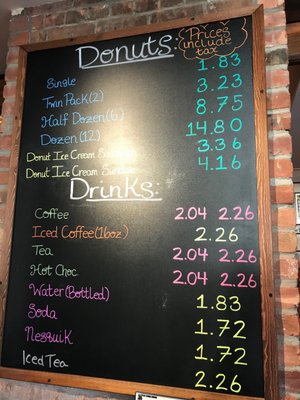 Donuts: Prices include tax
Single 1.83
Twin Pack (2) 3.23
Half Dozen (6) 8.75
Dozen (12) 14.80
Donut Ice Cream 3.36
Donut Ice Cream Sundae 4.16
Drinks:
Coffee 2.04 2.26
Iced Coffee (16oz) 2.26
Tea 2.04 2.26
Hot Choc 2.04 2.26
Water (Bottled) 1.83
Soda 1.72
Nesquik 1.72
Iced Tea 2.26